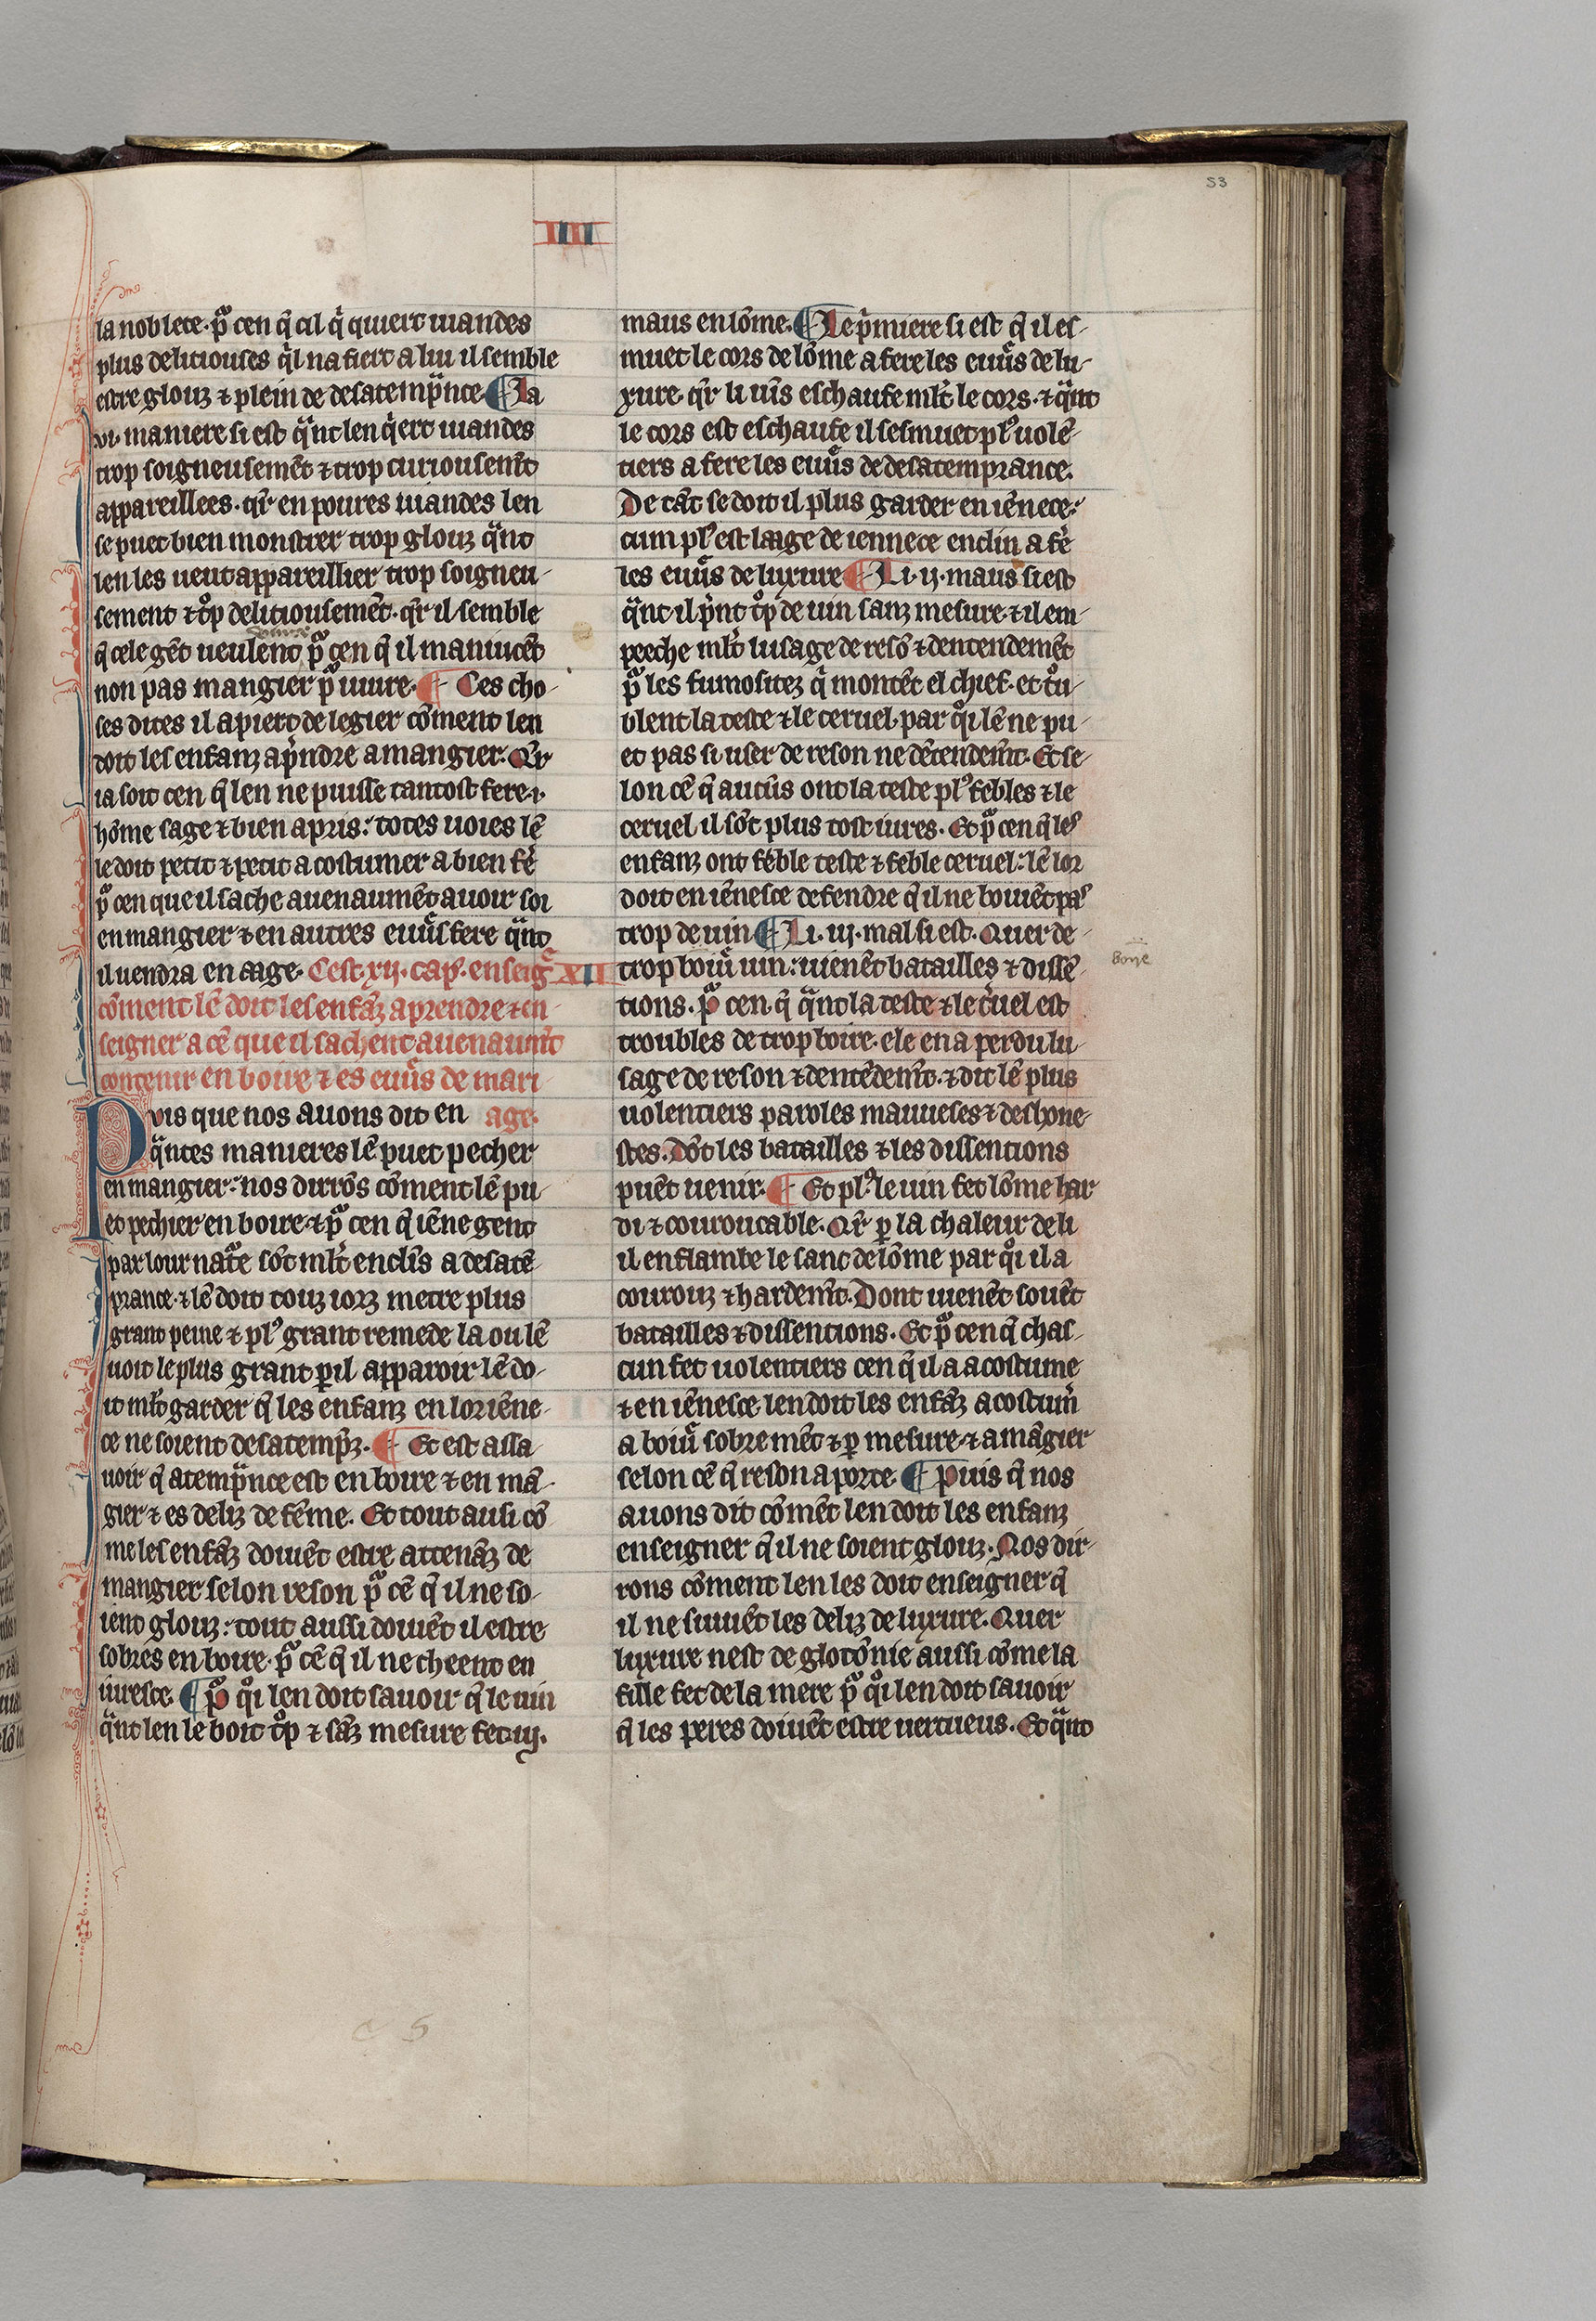 53
IIII
la noblece. pͣ cen q̄ cil qͥ quiert uiandes
plus deliciouses qͥl nafiert a lui il semble
estre glouz ⁊ plein de desatempͣnce. ¶ La
vi. maniere si est qͣnt len qͥert uiandes
trop soigneusemēt ⁊ trop curiousemēt
appareillees. qr̄ en poures uiandes len
se puet bien monstrer trop glouz qͣnt
len les ueut appareillier trop soigneu-
sement ⁊ tͦp deliciousemēt. qr̄ il semble
q̄ cele gēt ueulent pͣ cen q̄ il maniucēt
non pas mangier pͣ uiure. ¶ Ces cho-
ses dites il apiert de legier cōment len
doit les enfanz apͬndre a mangier. Qr̄
ia soit cen q̄ len ne puisse tantost fere .i.
hōme sage ⁊ bien apris: totes uoies lē
le doit petit ⁊ petit acostumer a bien fē
pͣ cen que il sache auenaumēt auoir soi
en mangier ⁊ en autres euurͣs fere qͣnt
il uendra en aage. Cest xij. capͬ. enseigͤ XII
cōment lē doit les enfāz aprendre ⁊ en-
seigner a cē que il sachent auenaumt̄
contenir en boire ⁊ es euurͣs de mari-
Puis que nos auons dit en age.
qͣntes manieres lē puet pecher
en mangier: nos dirrōs cōment lē pu-
et pechier en boire. ⁊ pͣ cen q̄ iēne gent
par lour natͬe sōt mlt̄ enclīs a desatē-
prance. ⁊ lē doit touz iorz metre plus
grant peine ⁊ plꝰ grant remede la ou lē
uoit le plus grant ꝑil apparoir lē do-
it mlt̄ garder q̄ les enfanz en lor iēne-
ce ne soient desatempͬz. ¶ Et est assa-
uoir q̄ atempͣnce est en boire ⁊ en mā-
gier ⁊ es deliz de fēme. Et tout ausi cō-
me les enfāz doiuēt estre attenāz de
mangier selon reson pͣ cē q̄ il ne so-
ient glouz: tout aussi doiuēt il estre
sobres en boire. pͣ cē q̄ il ne cheent en
iuresce. ¶ pͣ qͦi len doit sauoir q̄ le uin
qͣnt len le boit tͦp ⁊ sāz mesure fet .iij.
maus en lōme. ¶ Le pͬmiere si est q̄ il es-
muet le cors de lōme a fere les euurͣs de lu-
xure. qr̄ li uīs eschaufe mlt̄ le cors. ⁊ qͣnt
le cors est eschaufe il sesmuet plꝰ uolē-
tiers a fere les euurͣs de desatemprance.
De tāt se doit il plus garder en iēnece:
cum plꝰ est laage de iennece enclin a fē
les euurͣs de luxure ¶ Li .ij. maus si est
qͣnt il pͬnt tͦp de uin sanz mesure. ⁊ il em-
peeche mlt̄ lusage de resō ⁊ dentendemēt
pͣ les fumositez qͥ montēt el chief. et tͦu-
blent la teste ⁊ le ceruel. par qͦi lē ne pu-
et pas si user de reson ne dētendemt̄. Et se-
lon cē q̄ aucūs ont la teste plꝰ febles ⁊ le
ceruel il sōt plus tost iures. Et pͣ cen q̄ les
enfanz ont feble teste ⁊ feble ceruel: lē lor
doit en iēnesce defendre q̄ il ne boiuēt pas
trop de uin ¶ Li .iij. mal si est. Quer de
trop boiurͤ uin: uienēt batailles ⁊ dissē-
Boire
tions. pͣ cen. q̄ qͣnt la teste ⁊ le cͬuel est
troubles de trop boire. ele en a perdu lu-
sage de reson ⁊ dentēdemt̄. ⁊ dit lē plus
uolentiers paroles mauueses ⁊ deshone-
stes. Dōt les batailles ⁊ les dissentions
puēt uenir. ¶ Et plꝰ. le uin fet lōme har-
di ⁊ couroucable. Qr̄ ꝑ la chaleur de li
il enflambe le sanc de lōme par qͦi il a
courouz ⁊ hardemt̄. Dont uienēt souēt
batailles ⁊ dissentions. Et pͣ cen q̄ chas-
cun fet uolentiers cen q̄ il a acostume
⁊ en iēnesce len doit les enfāz acostumͬ
a boiurͤ sobremēt ⁊ ꝑ mesure. ⁊ a māgier
selon cē q̄ reson aporte. ¶ Puis q̄ nos
auons dit cōmēt len doit les enfanz
enseigner q̄ il ne soient glouz. Nos dir-
rons cōment len les doit enseigner q̄
il ne siuuēt les deliz de luxure. Quer
luxure nest de glotōnie aussi cōme la
fille fet de la mere pͣ qͦi len doit sauoir
q̄ les peres doiuēt estre uertueus. Et qͣnt